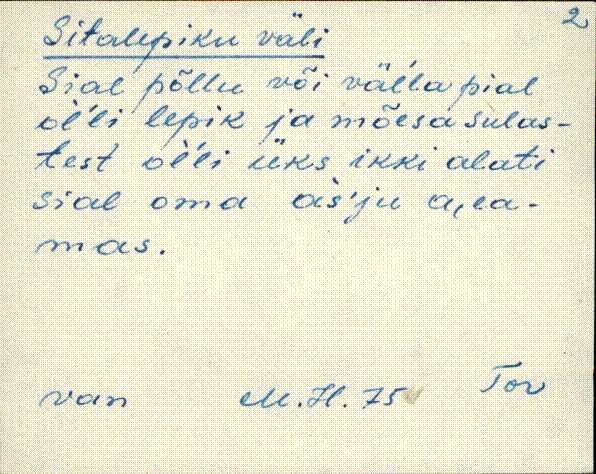 2
Sitalepiku väli
Sial põllu või väĺĺa pial
oĺĺi lepik ja mõesa sulas-
test oĺĺi üks ikki alati
sial oma aśju a,ea-
mas.
van M.H. 75 Tor